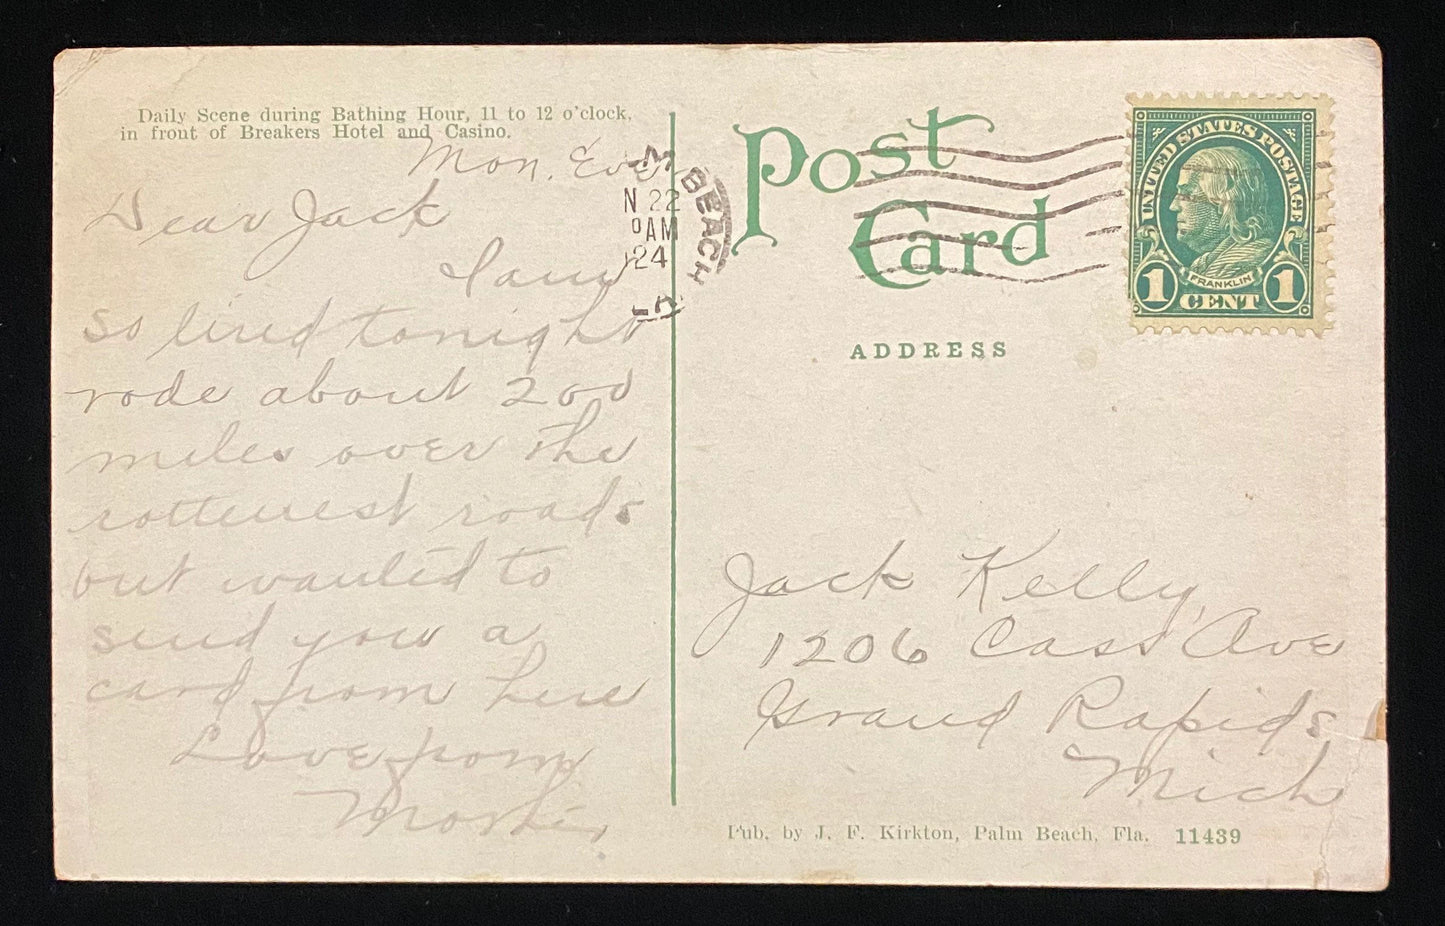 Daily Scene during Bathing Hour, 11 to 12 o'clock,
in front of Breakers Hotel and Casino.
Mon. Eve
Dear Jack
I am
so tired tonight
rode about 200
miles over the
rottenest roads
but wanted to
send you a
card from here
Love from
BEACH
N 22
AM
24
Post
Card
UNITED STATES POSTAGE
FRANKLIN
1 CENT 1
ADDRESS
Jack Kelly,
1206 Cass Ave
Grand Rapids
Mich
Pub. by J. F. Kirkton, Palm Beach, Fla. 11439